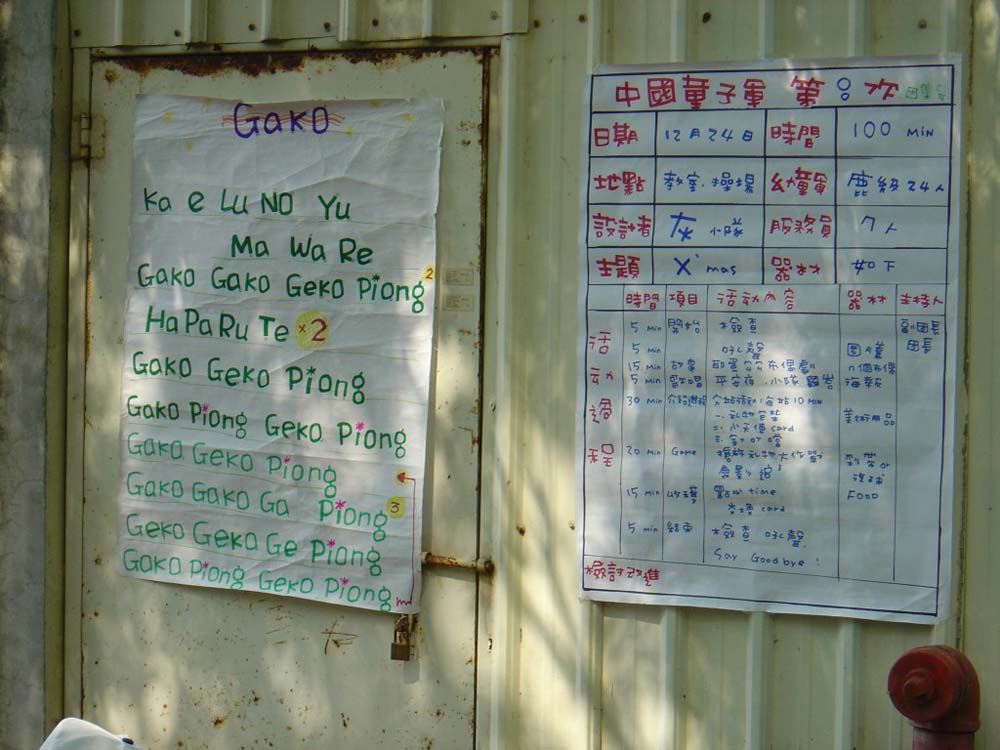 Gako
Ka e Lu No Yu
Ma Wa Re
Gako Gako Geko Piong 2
HaPaRu Te ×2
Gako Geko Piong
Gako Piong Geko Piong
Gako Geko Piong
Gako Gako Ga Piong 3
Geko Geko Ge Piong
Gako Piong Geko Piong
中國童子軍 第8次
日期 12月24日 時間 100 MIN
地點 教室.操場 幼童軍 鹿級24人
設計者 灰小隊 服務員 7人
主題 X'mas 器材 如下
活動過程
時間 項目 活動內容 器材 主持人
5 Min 開始 檢查 副團長
5 Min 吼聲 團長
15 Min 故事 布偶劇
5 Min 歌唱 平安夜.小隊歡呼 海報
30 Min 分站活動(每站10 Min
一.禮物包裝 美術用品
二.小天使card
三.
20 Min Game 搶救禮物大作戰
15 Min 收穫 點心time FOOD
交換card
5 min 結束 檢查 吼聲
Say Goodbye!
檢討改進